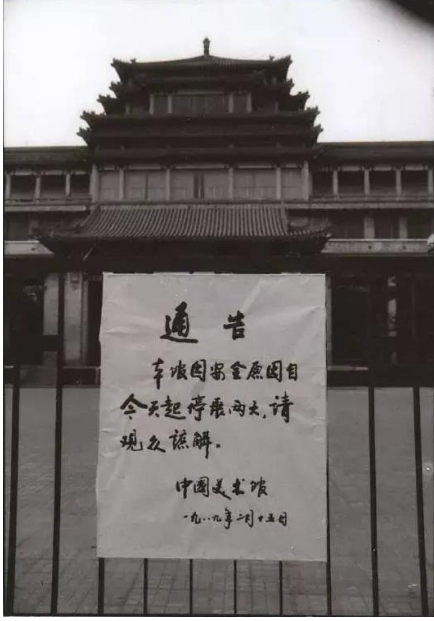 通告
本馆因安全原因自
今天起停展两天，请
观众諒解。
中国美术馆
一九八九年二月十五日